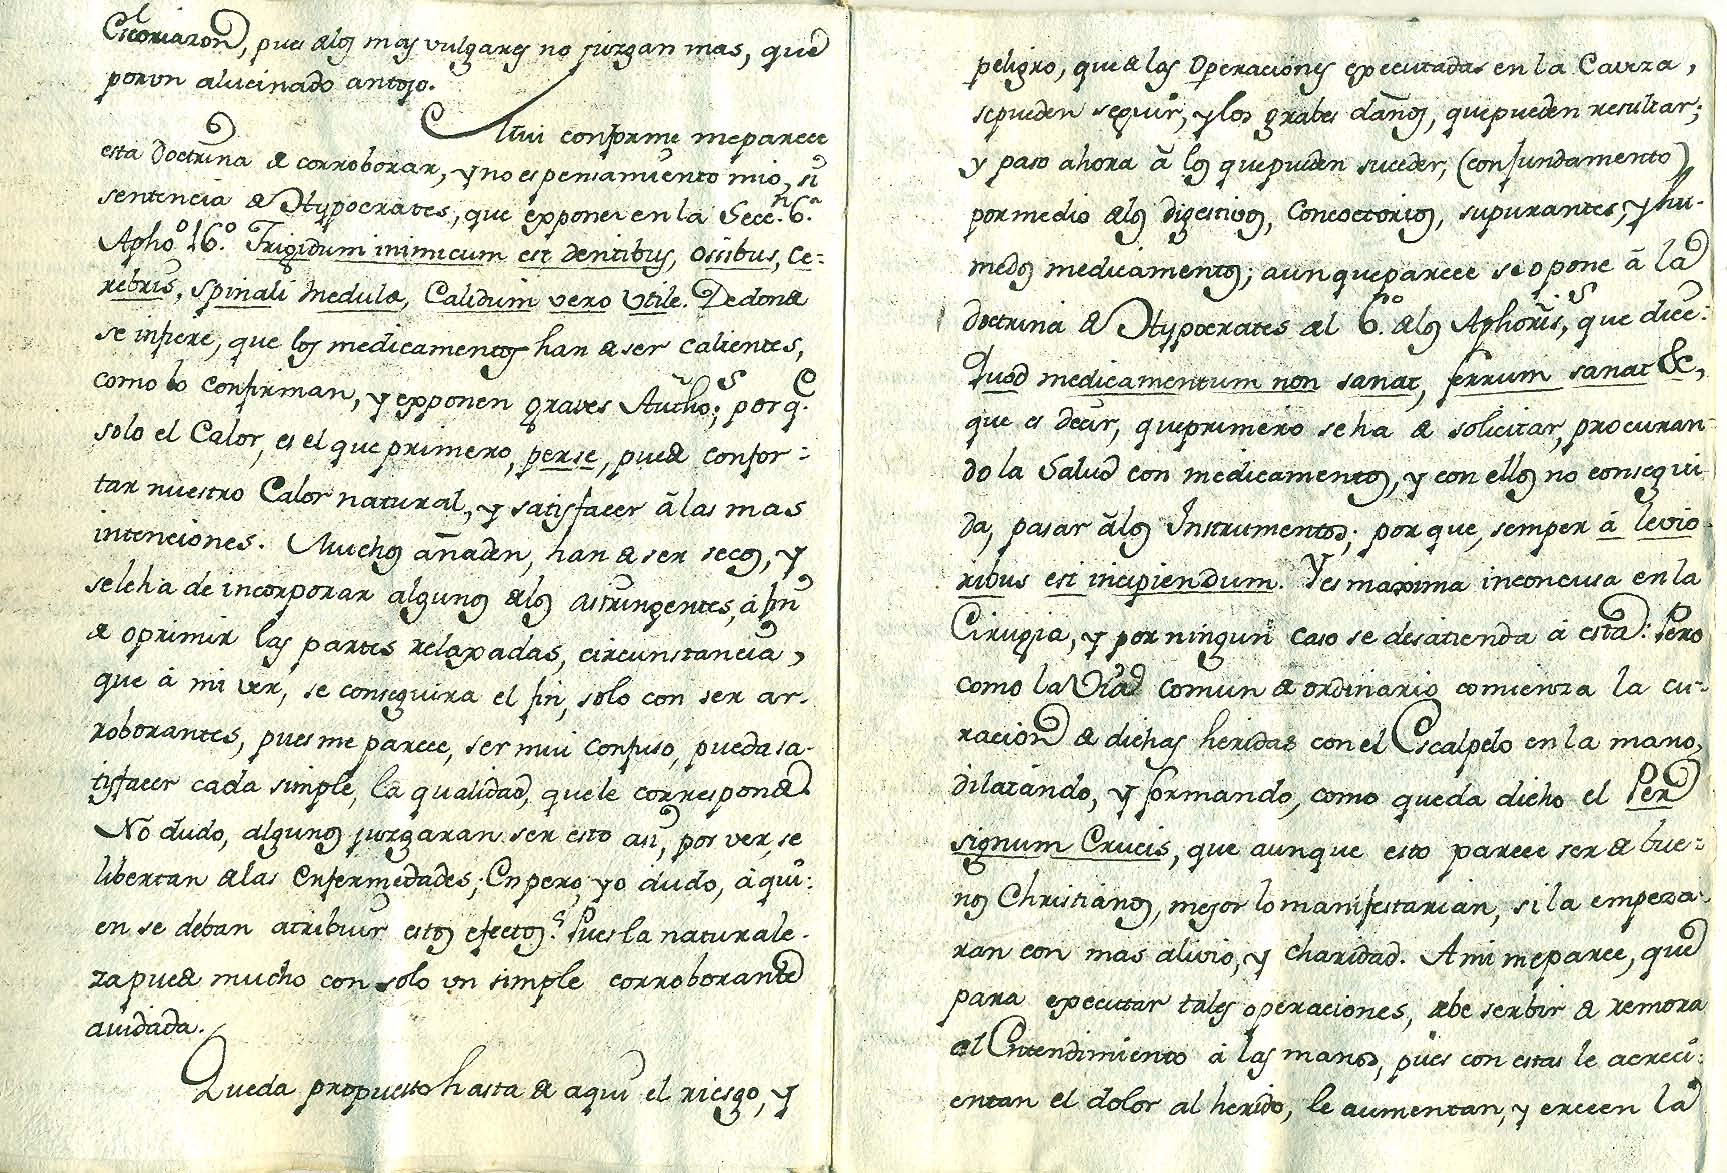 Escoriazon, pues de los mas vulgares no juzgan mas, que
por vn alucinado antojo.
Mui conforme me parece
esta doctrina de corroborar, y no es pensamiento mio, si
sentencia de Hypocrates, que expone en la Secc.n 6.a
Apho.o 16.o Frigidum inimicum est dentibus, ossibus, ce-
rebris, spinali medulæ, Calidum vero Vtile. De donde
se infiere, que los medicamentos han de ser calientes,
como lo confirman, y exponen graves Autho.s; por q.e
solo el Calor, es el que primero, perse, puede confor-
tar nuestro Calor natural, y satisfacer á las mas
intenciones. Muchos añaden, han de ser secos, y
seleha de incorporar algunos de los astringentes, á fin
de oprimir las partes relaxadas, circunstancia,
que á mi ver, se conseguira el fin, solo con ser ar-
roborantes, pues me parece, ser mui confuso, pueda sa-
tisfacer cada simple, la qualidad, que le corresponde.
No dudo, algunos juzgaran ser esto asi, por ver, se
libertan de las Enfermedades; Enpero, yo dudo, á qui-
en se deban atribuir estos efectos? Pues la naturale-
za puede mucho con solo vn simple corroborante
auidada.
Queda propuesto hasta de aqui el riesgo, y
peligro, que de las Operaciones executadas en la Caveza,
sepueden seguir, y los grabes daños, que pueden resultar;
y paso ahora á los que puden suceder, (con fundamento)
por medio de los digestivos, Concoctorios, supurantes, y hu-
medos medicamentos; aunque parece se opone á la
doctrina de Hypocrates al 6.o de los Aphoris.s, que dice:
Quod medicamentum non sanat, ferrum sanat &c,
que es decir, que primero se ha de solicitar, procuran-
do la Salud con medicamentos, y con ellos no consegui-
da, pasar á los Instrumentos; por que, semper á levio-
ribus est incipiendum. Y es maxima inconcusa en la
Cirugia, y por ningun caso se desatienda á esta: Pero
como la Via comun de ordinario comienza la cu-
racion de dichas heridas con el Escalpelo en la mano,
dilatando, y formando, como queda dicho el Per
signum Crucis, que aunque esto parece ser de bue-
nos Christianos, mejor lo manifestarian, si la empeza-
ran con mas alivio, y charidad. A mi me parece, que
para executar tales operaciones, debe serbir de remora
el Entendimiento á las manos, pues con estas le acreci-
entan el dolor al herido, le aumentan, y crecen la